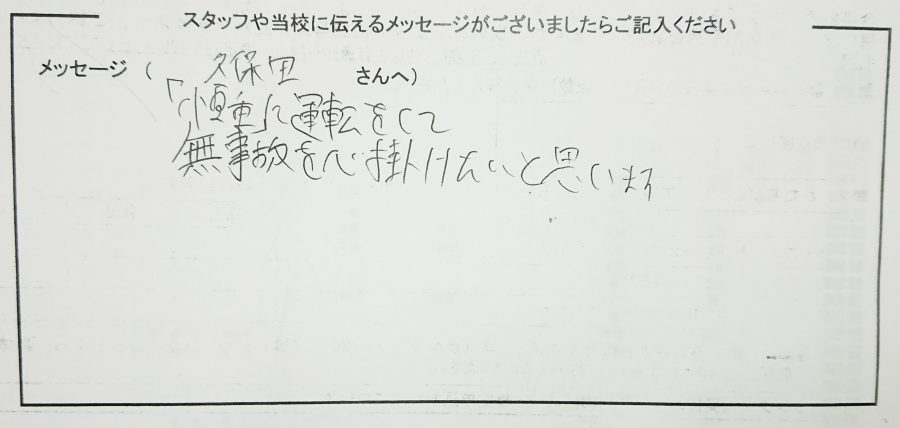 スタッフや当校に伝えるメッセージがございましたらご記入ください
メッセージ（ 久保田 さんへ）
「慎重」に運転をして
無事故を心掛けたいと思います